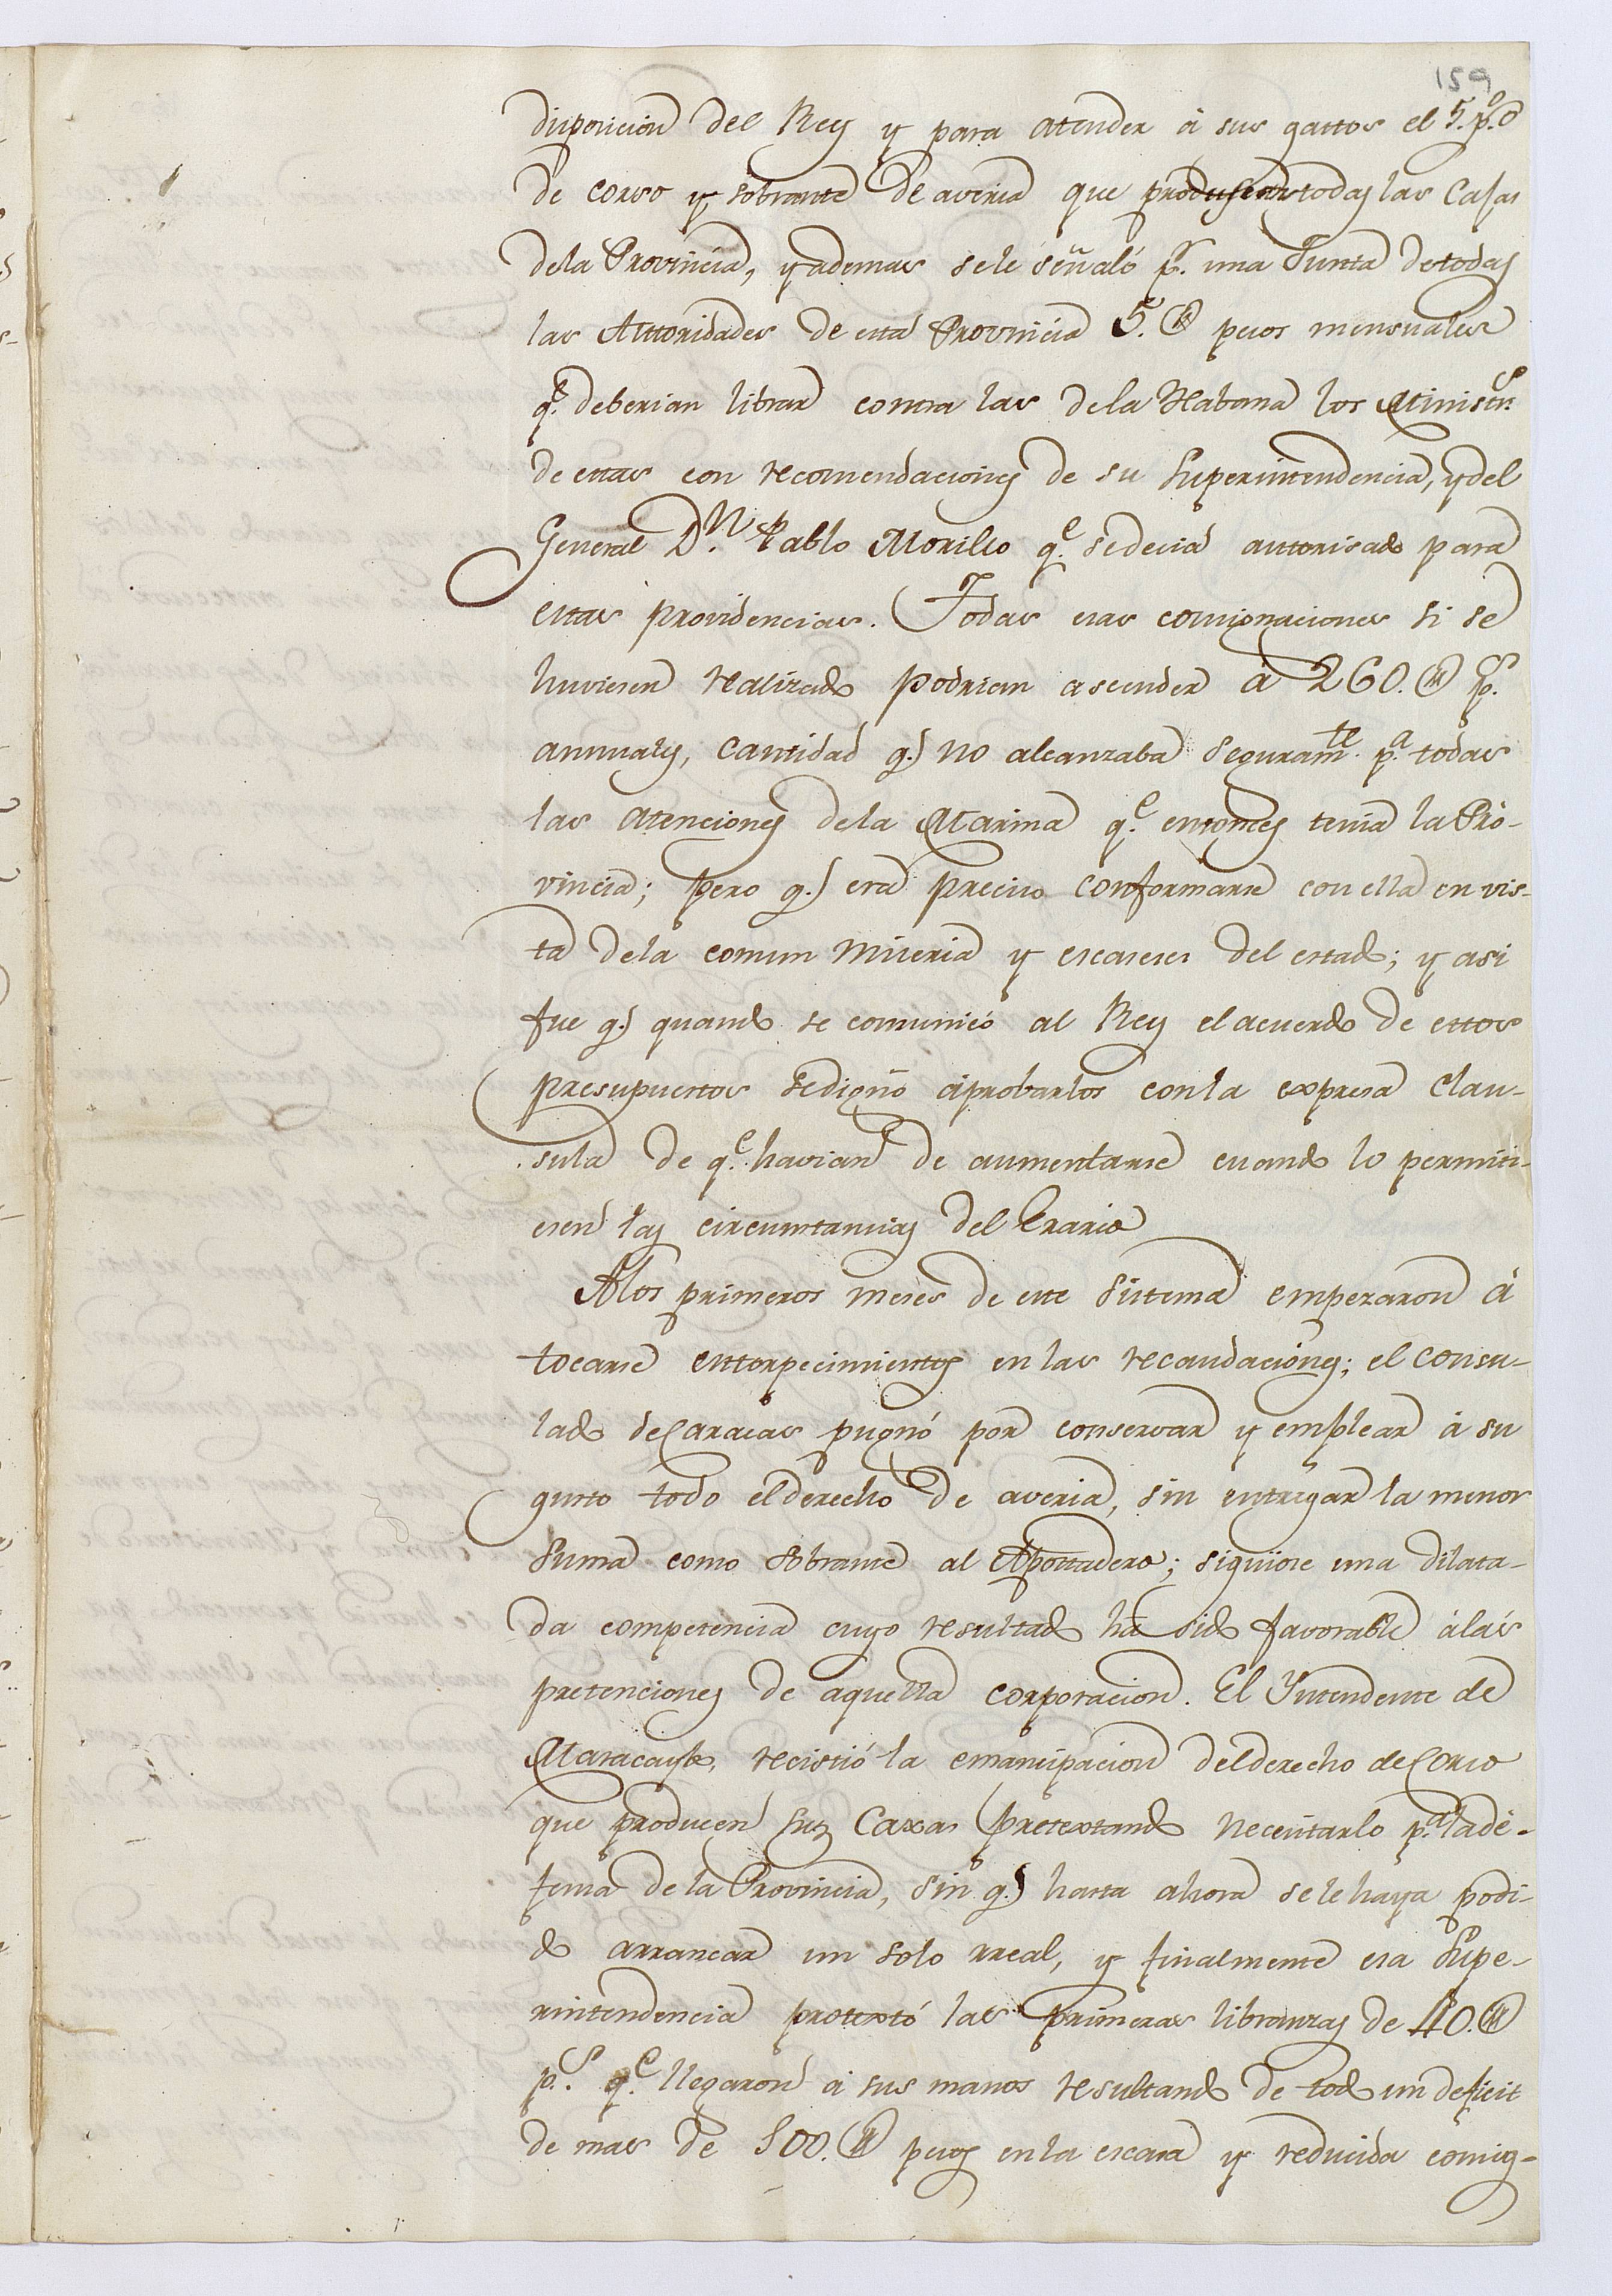 159
disposicion del Rey y para atender á sus gastos el 5. p.º º
de corso y sobrante de averia que produscan todas las Casas
dela Provincia, y ademas sele señaló p.r una Junta de todas
las Autoridades de esta Provincia 5.(M) pesos mensuales
q.e deberian librar contra las dela Habana los Minist.s
de estas con recomendaciones de su Superintendencia, y del
General D.n Pablo Morillo q.e se decia autorisado para
estas providencias. Todas esas consignaciones si se
huviesen realizado podrian ascender á 260.(M) p.s
annuales, cantidad q.e no alcanzaba seguram.te p.a todas
las atenciones dela Marina q.e entonces tenia la Pro-
vincia; pero q.e era preciso conformarse con ella en vis-
ta dela comun miseria y escaseses del estado; y asi
fue q.e quando se comunicó al Rey el acuerdo de estos
presupuestos se dignó aprobarlos con la expresa clau-
sula de q.e havian de aumentarse cuando lo permiti-
esen las circunstancias del Erario
A los primeros meses de este sistema empezaron á
tocarse entorpecimientos en las recaudaciones; el Consu-
lado de Caracas pugnó por conservar y emplear á su
gusto todo el derecho de averia, sin entregar la menor
suma como sobrante al Apostadero; siguiose una dilata-
da competencia cuyo resultado ha sido favorable á las
pretenciones de aquella corporacion. El Yntendente de
Maracaybo, recistió la emancipacion del derecho de Corso
que producen sus Caxas pretextando necesitarlo p.a la de-
fensa de la Provincia, sin q.e hasta ahora se le haya podi-
do arrancar un solo rreal, y finalmente esa Supe-
rintendencia protextó las primeras libranzas de 40.(M)
p.s q.e llegaron á sus manos resultando de todo un deficit
de mas de 100.(M) pesos en la escasa y reducida consig-